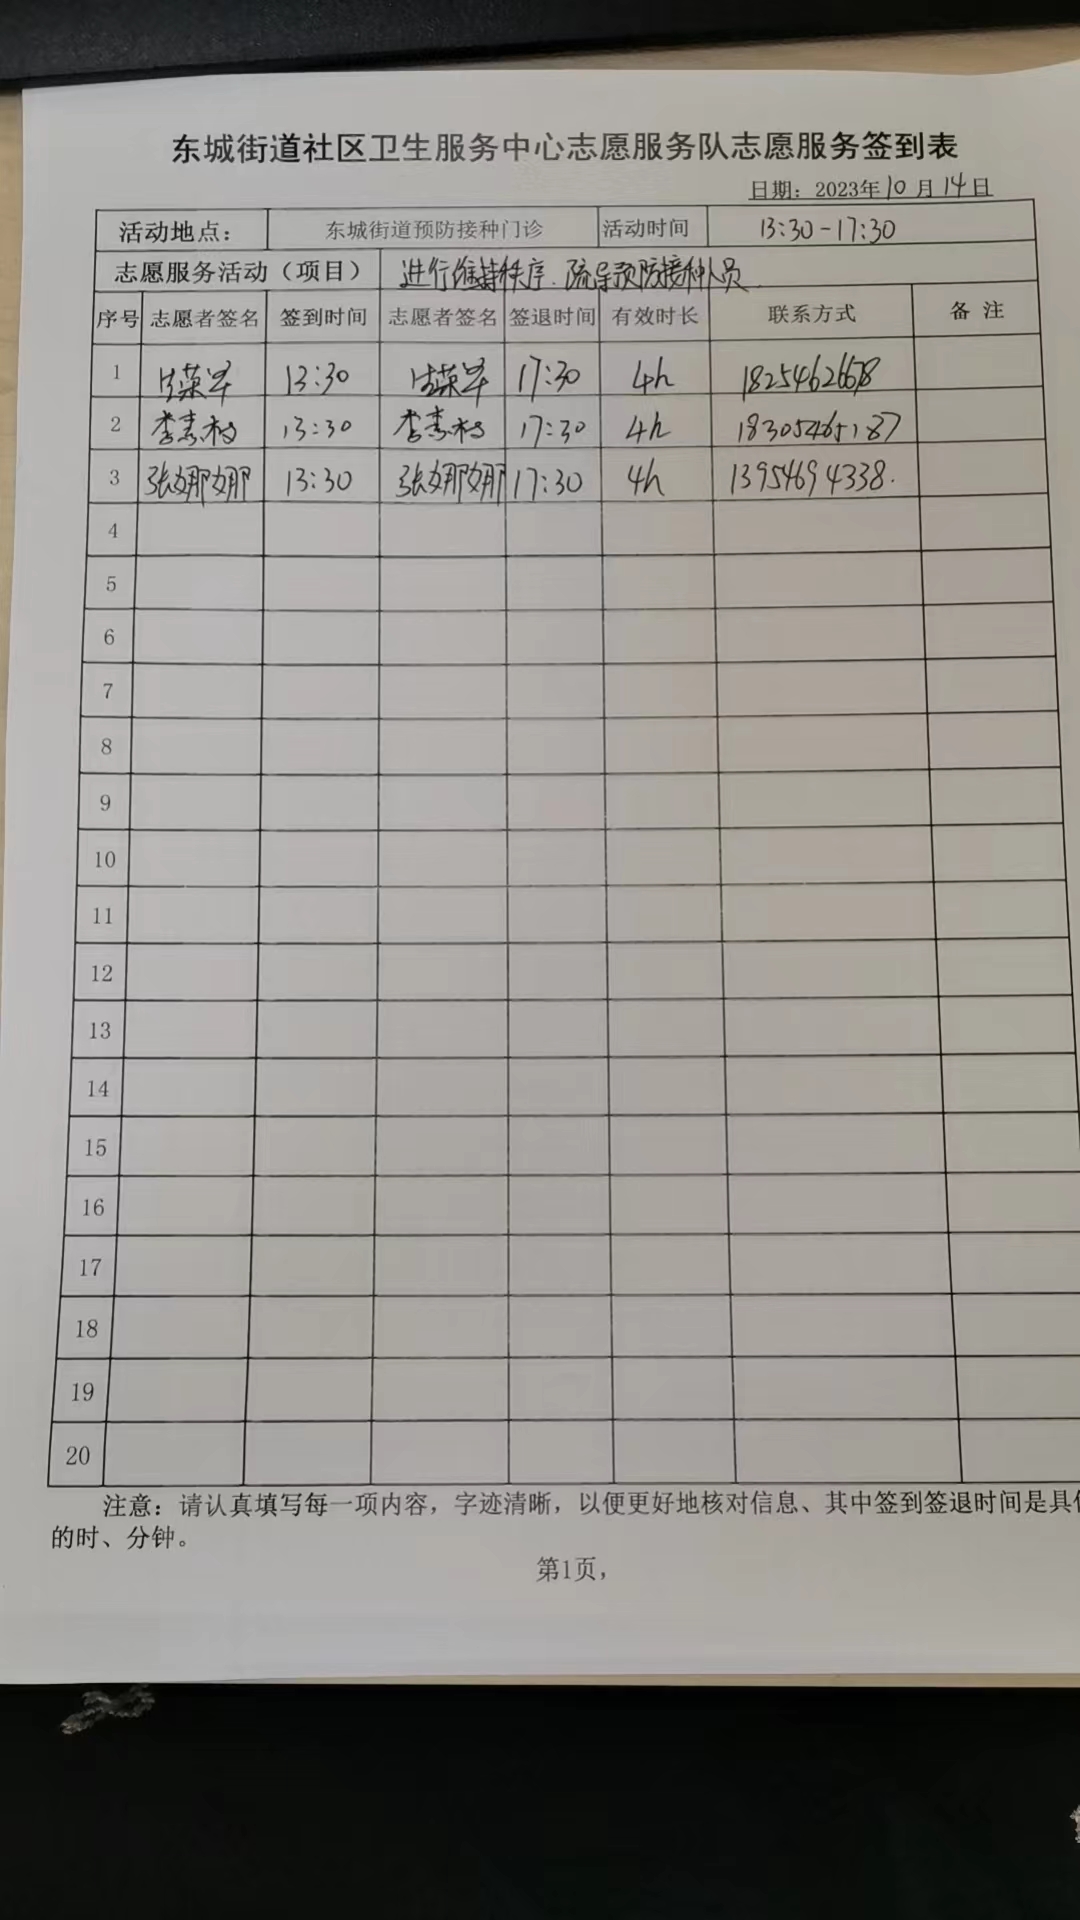 东城街道社区卫生服务中心志愿服务队志愿服务签到表
日期：2023年10月14日
活动地点： 东城街道预防接种门诊 活动时间 13:30-17:30
志愿服务活动（项目） 进行维持秩序、疏导预防接种人员.
序号 志愿者签名 签到时间 志愿者签名 签退时间 有效时长 联系方式 备 注
1 荣军 13:30 荣军 17:30 4h
2 李素梅 13:30 李素梅 17:30 4h 18305465187
3 张娜娜 13:30 张娜娜 17:30 4h 13954694338.
4
5
6
7
8
9
10
11
12
13
14
15
16
17
18
19
20
注意：请认真填写每一项内容，字迹清晰，以便更好地核对信息、其中签到签退时间是具
的时、分钟。
第1页，